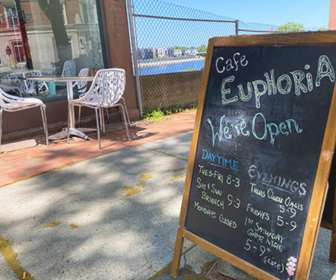 Cafe
EUPHORIA
We're Open
DAYTIME
TUES-FRI 8-3
SAT & SUN 9-3
BRUNCH
MONDAYS CLOSED
EVENINGS
THURS
5-9
FRIDAYS
5-9
1st SATURDAY
GAME NIGHT
5-9